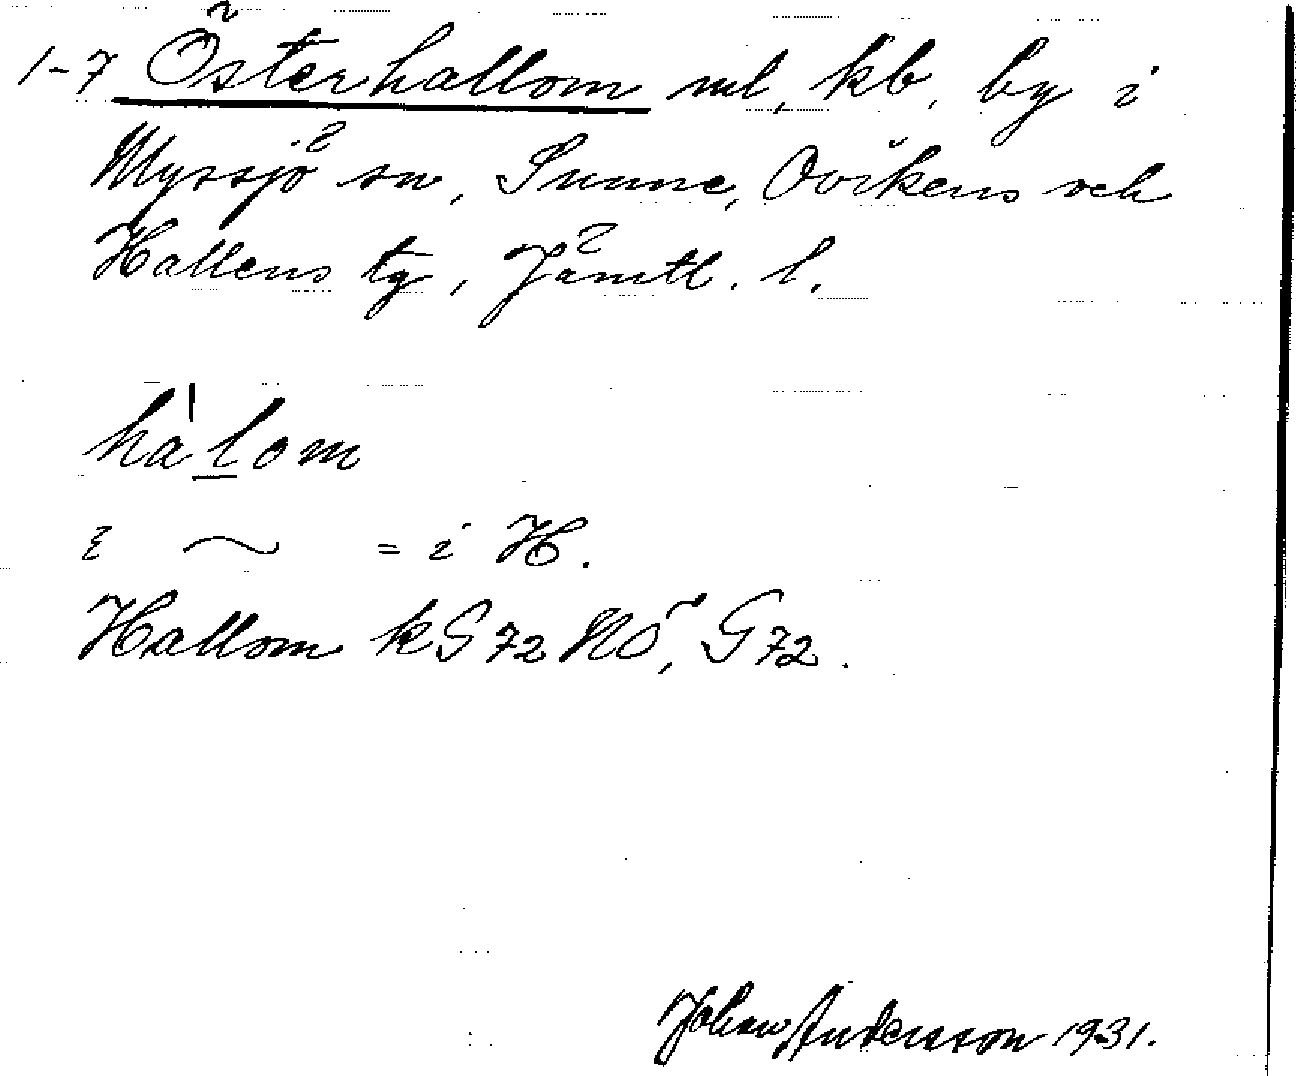 1-7 Österhallom ml, kb, by i
Myssjö sn, Sunne, Ovikens och
Hallens tg, Jämtl. l.
hà'lom
i ~ = i H.
Hallom kG72NÖ, G72.
Johan Andersson 1931.